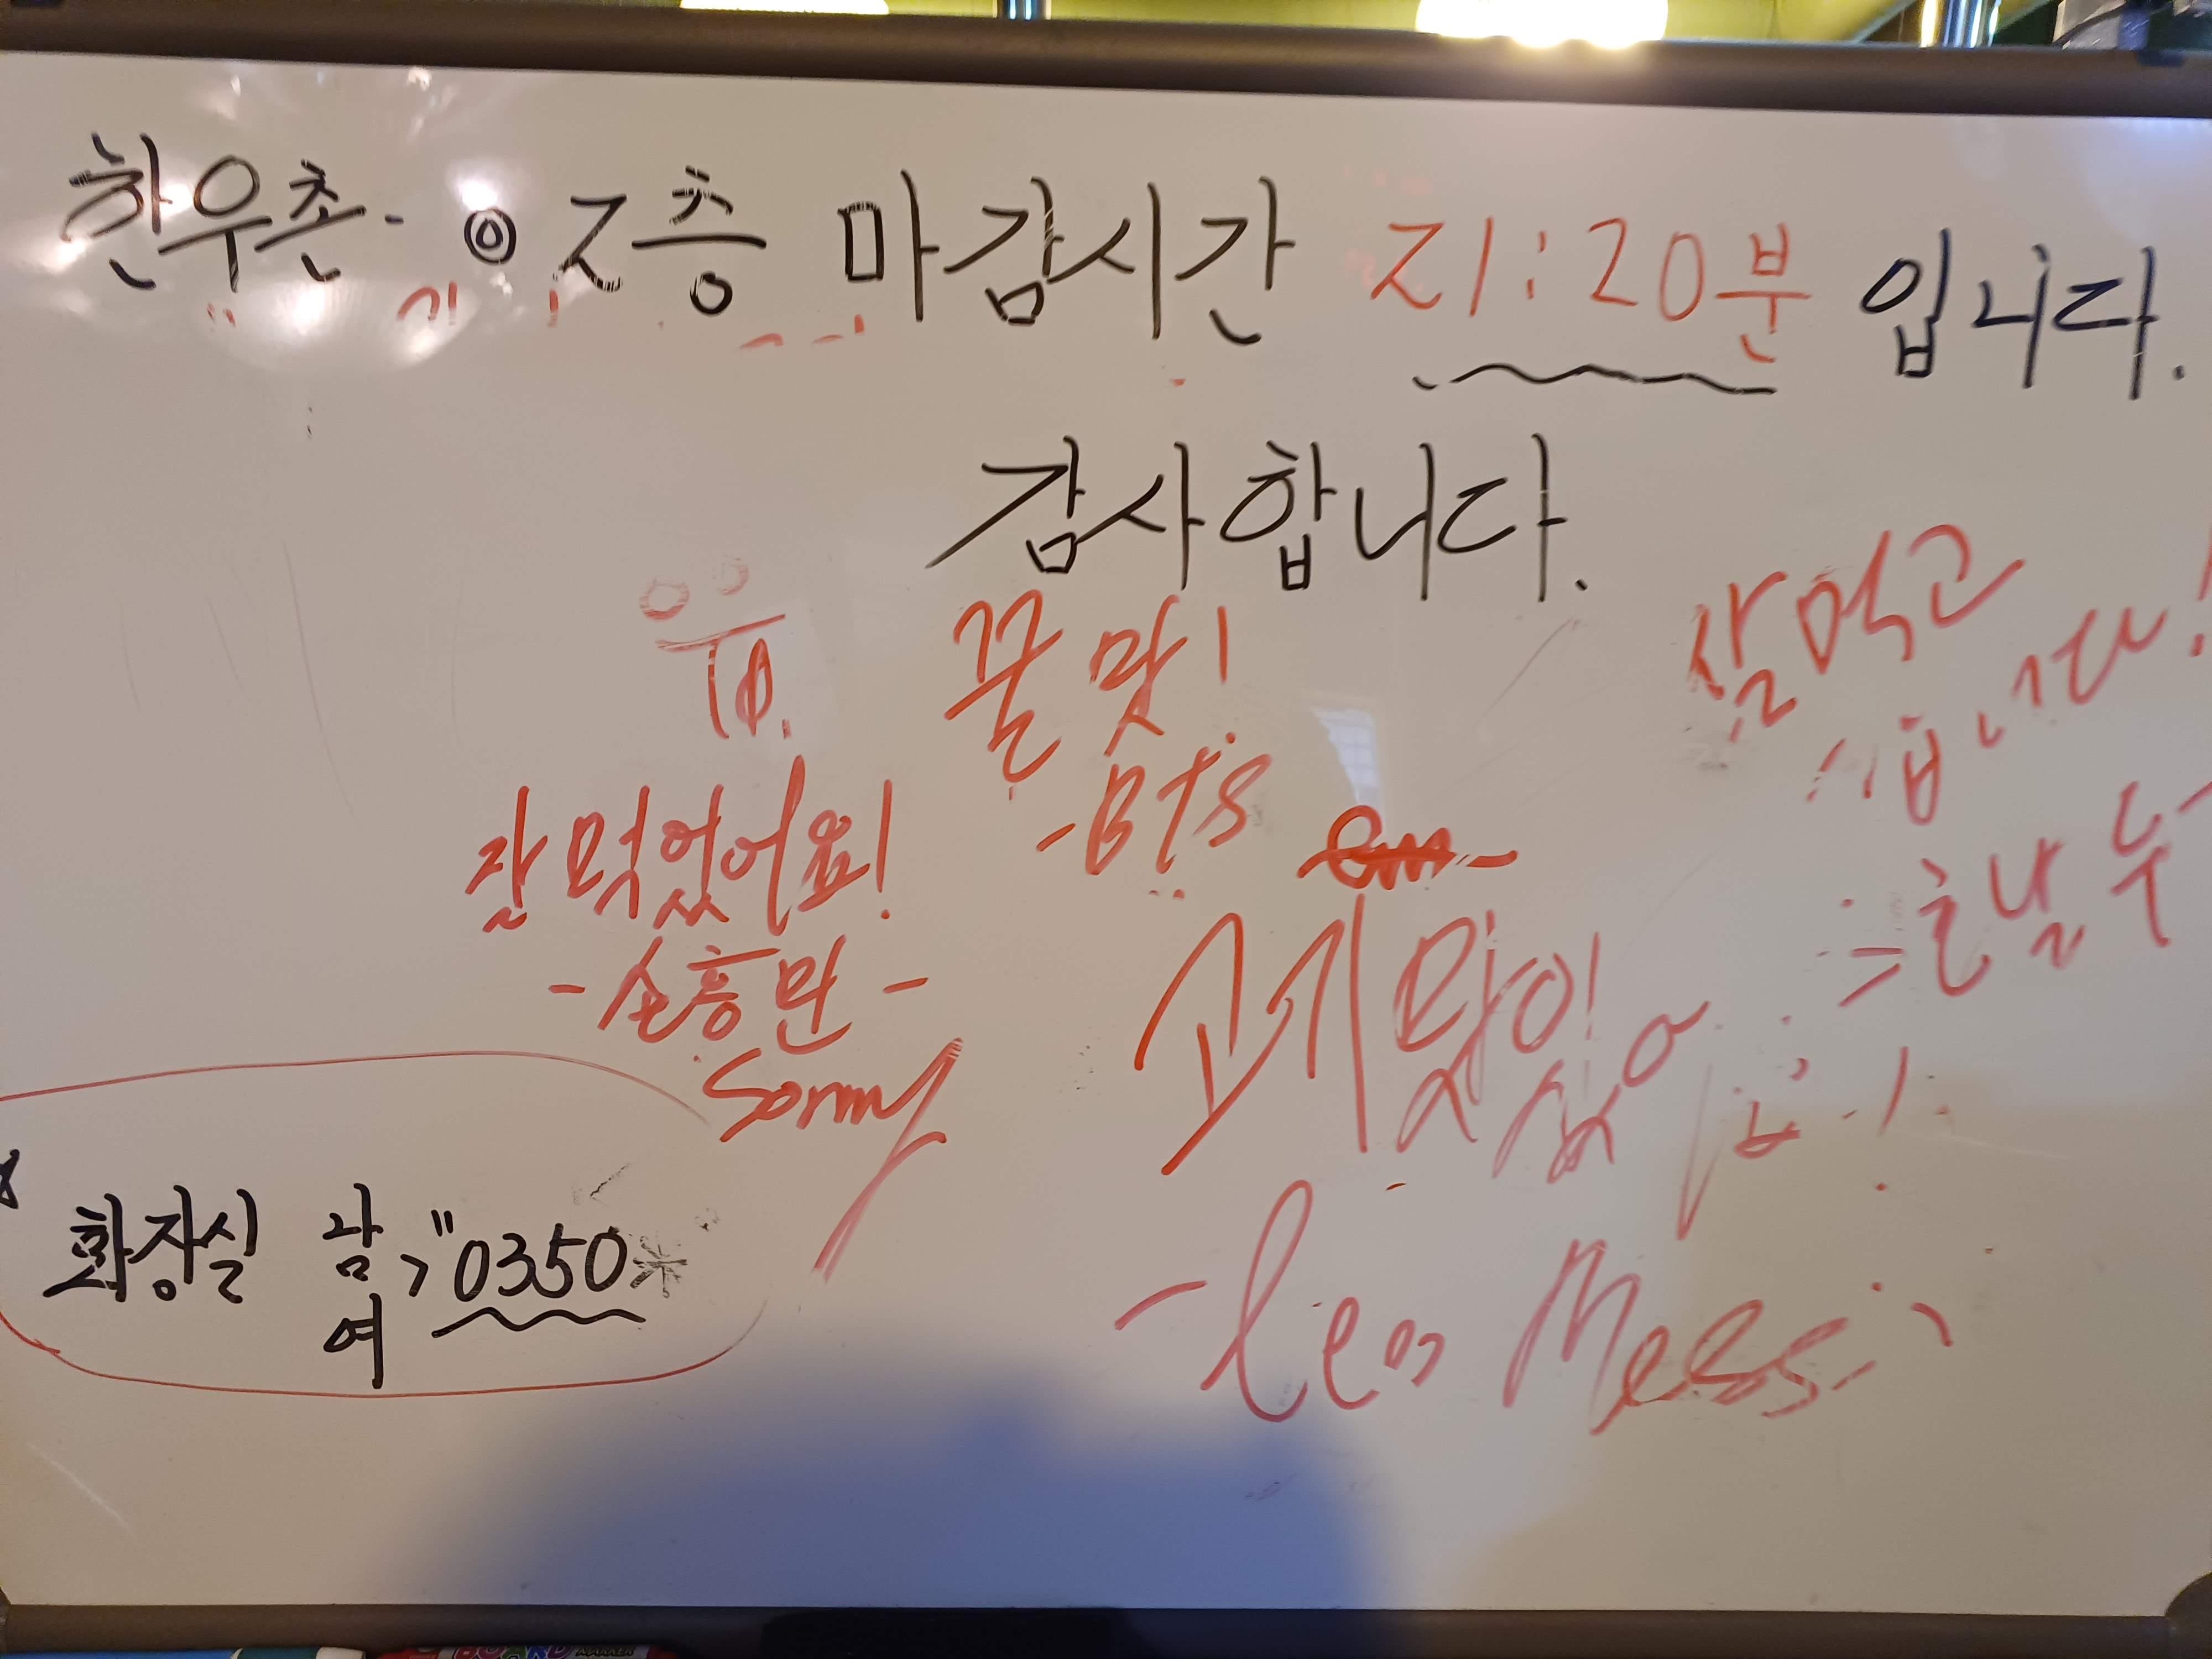 한우촌- ◎ 2층 마감시간 21:20분 입니다.
감사합니다.
꿀맛!
-BTS
잘 먹고
갑니다!
잘 먹었어요!
-손흥민-
Sonny
고기 맛이
-Leo Messi-
화장실 남 여 > "0350*